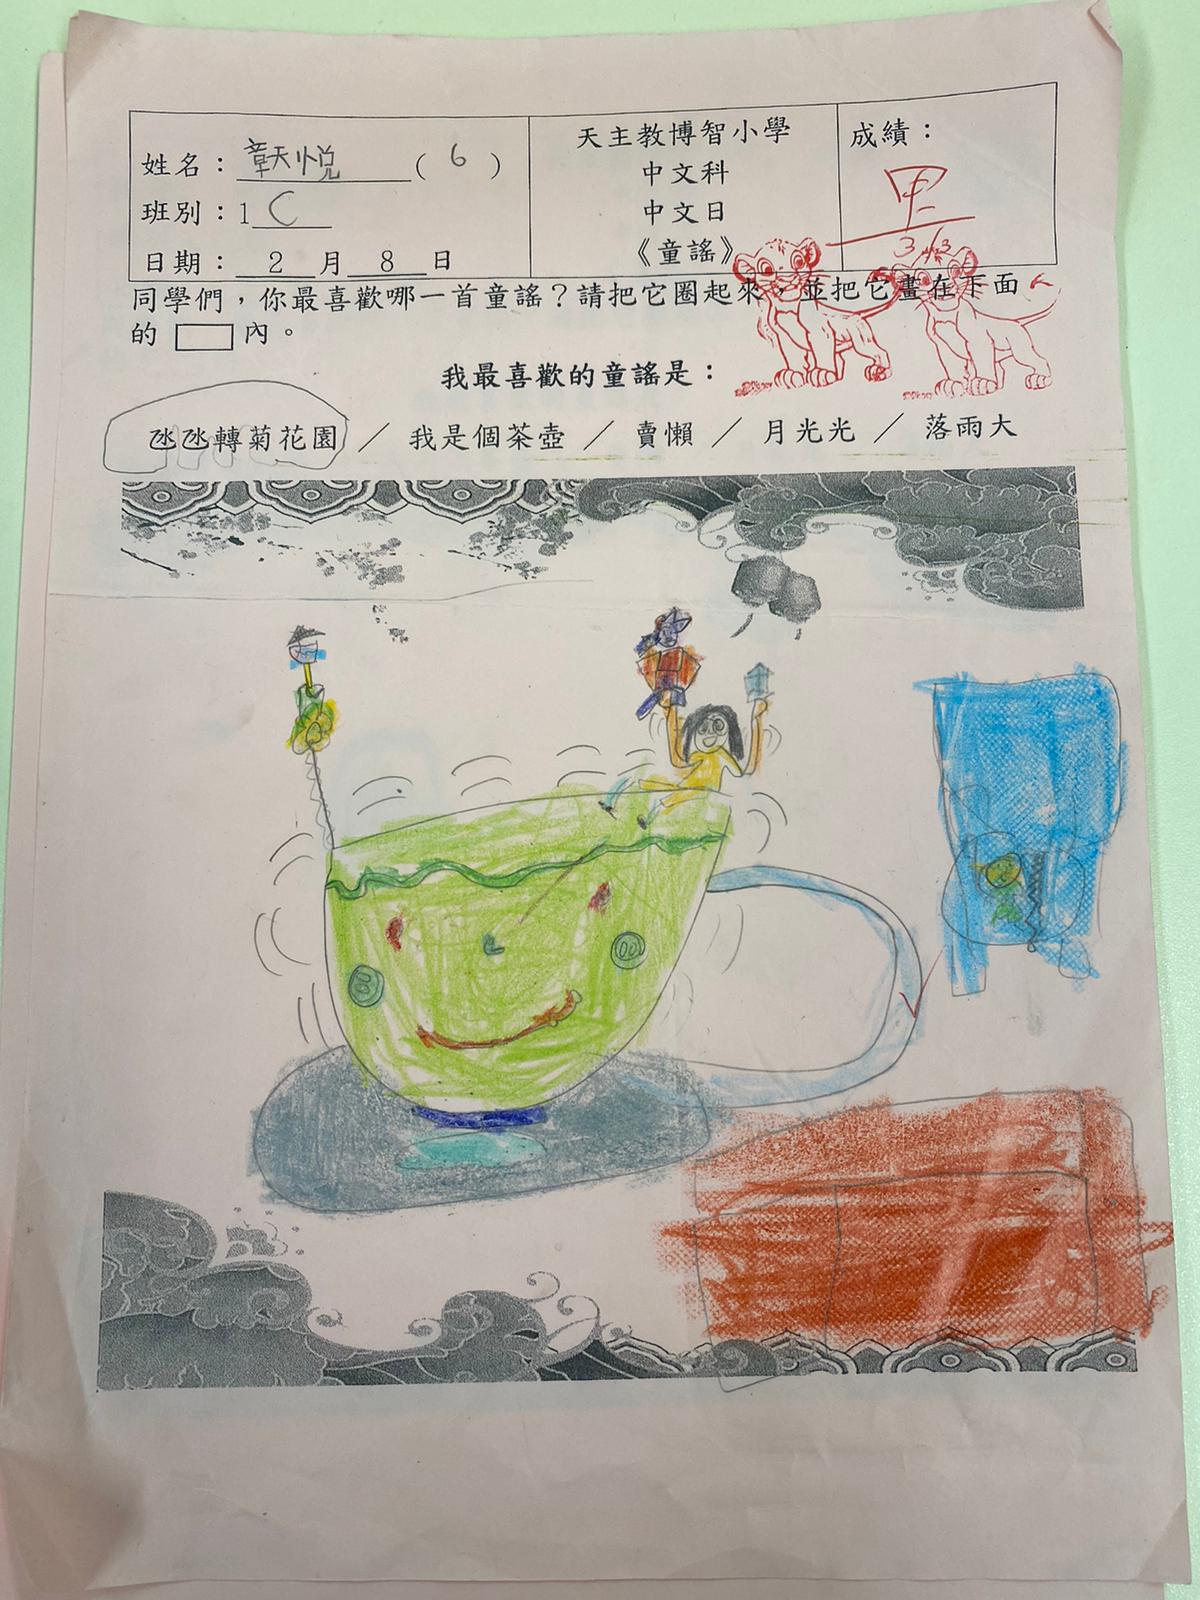 姓名：章天悅（6）
班別：1C
日期：2月8日
天主教博智小學
中文科
中文日
《童謠》
成績：
甲
3/3
同學們，你最喜歡哪一首童謠？請把它圈起來，並把它畫在下面
的 內。
我最喜歡的童謠是：
氹氹轉菊花園 ／ 我是個茶壺 ／ 賣懶 ／ 月光光 ／ 落雨大